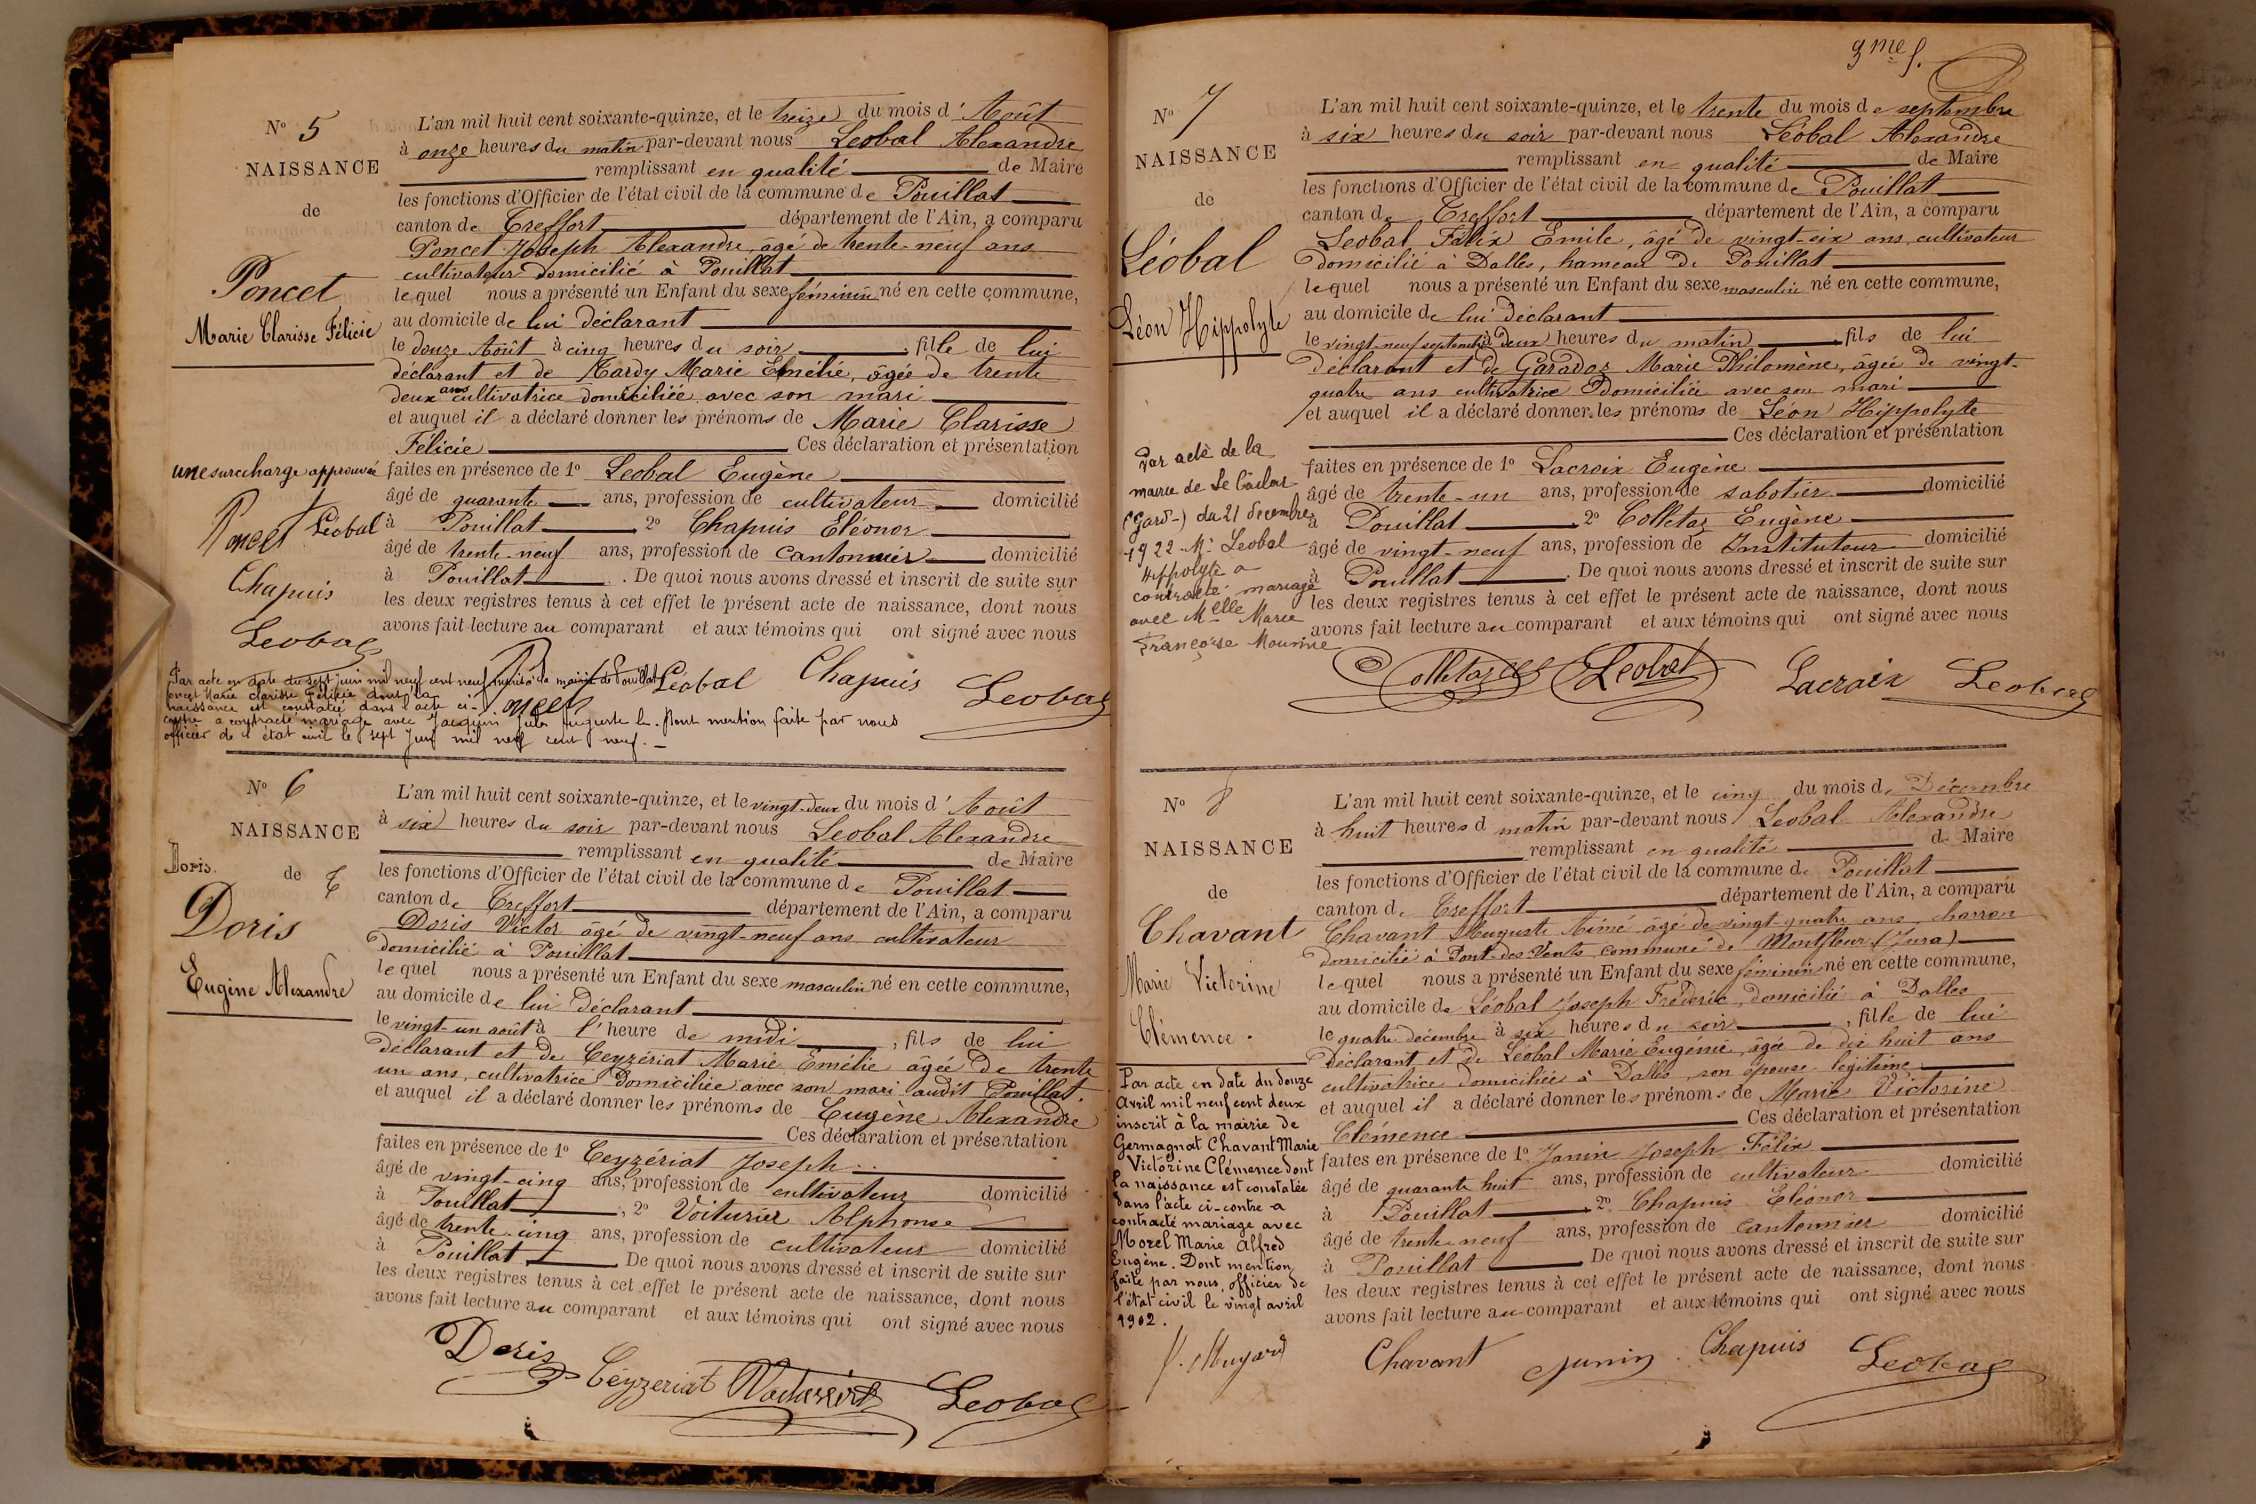 N° 5
NAISSANCE
de
Poncet
Marie Clarisse Félicie
L'an mil huit cent soixante-quinze, et le treize du mois d'Août
à onze heures du matin par-devant nous Leobal Alexandre
remplissant en qualité de Maire
les fonctions d'Officier de l'état civil de la commune de Pouillat
canton de Treffort département de l'Ain, a comparu
Poncet Joseph Alexandre, âgé de trente-neuf ans
cultivateur domicilié à Pouillat
lequel nous a présenté un Enfant du sexe féminin né en cette commune,
au domicile de lui déclarant
le douze Août à cinq heures du soir, fille de lui
déclarant et de Tardy Marie Emélie, âgée de trente
deux ans cultivatrice domiciliée avec son mari
et auquel il a déclaré donner les prénoms de Marie Clarisse
Félicie Ces déclaration et présentation
une surcharge approuvée
faites en présence de 1° Leobal Eugène
âgé de quarante ans, profession de cultivateur domicilié
à Pouillat 2° Chapuis Eléonor
âgé de trente-neuf ans, profession de cantonnier domicilié
à Pouillat. De quoi nous avons dressé et inscrit de suite sur
les deux registres tenus à cet effet le présent acte de naissance, dont nous
avons fait lecture au comparant et aux témoins qui ont signé avec nous
Poncet Léobal
Chapuis
Leobal
Poncet Léobal Chapuis Leobal
Par acte en date du sept juin mil neuf cent neuf inscrit à la mairie de Pouillat
Poncet Marie Clarisse Félicie dont la
naissance est constatée dans l'acte ci-
contre a contracté mariage avec Jacquin Jules Auguste. Dont mention faite par nous
officier de l'état civil le sept Juin mil neuf cent neuf.
N° 6
NAISSANCE
Doris.
de
Doris
Eugène Alexandre
L'an mil huit cent soixante-quinze, et le vingt-deux du mois d'Août
à six heures du soir par-devant nous Leobal Alexandre
remplissant en qualité de Maire
les fonctions d'Officier de l'état civil de la commune de Pouillat
canton de Treffort département de l'Ain, a comparu
Doris Victor âgé de vingt-neuf ans cultivateur
domicilié à Pouillat
lequel nous a présenté un Enfant du sexe masculin né en cette commune,
au domicile de lui déclarant
le vingt-un août à l'heure de midi, fils de lui
déclarant et de Ceyzériat Marie Emélie âgée de trente
un ans, cultivatrice domiciliée avec son mari audit Pouillat.
et auquel il a déclaré donner les prénoms de Eugène Alexandre
Ces déclaration et présentation
faites en présence de 1° Ceyzériat Joseph
âgé de vingt-cinq ans, profession de cultivateur domicilié
à Pouillat, 2° Voiturier Alphonse
âgé de trente-cinq ans, profession de cultivateur domicilié
à Pouillat. De quoi nous avons dressé et inscrit de suite sur
les deux registres tenus à cet effet le présent acte de naissance, dont nous
avons fait lecture au comparant et aux témoins qui ont signé avec nous
Doris Ceyzeriat Leobal
9me f.
N° 7
NAISSANCE
de
Léobal
Léon Hippolyte
L'an mil huit cent soixante-quinze, et le trente du mois de septembre
à six heures du soir par-devant nous Léobal Alexandre
remplissant en qualité de Maire
les fonctions d'Officier de l'état civil de la commune de Pouillat
canton de Treffort département de l'Ain, a comparu
Leobal Félix Emile, âgé de vingt-six ans, cultivateur
domicilié à Dalles, hameau de Pouillat
lequel nous a présenté un Enfant du sexe masculin né en cette commune,
au domicile de lui déclarant
le vingt-neuf septembre à deux heures du matin, fils de lui
déclarant et de Garadoz Marie Philomène, âgée de vingt-
quatre ans cultivatrice domiciliée avec son mari
et auquel il a déclaré donner les prénoms de Léon Hippolyte
Ces déclaration et présentation
faites en présence de 1° Lacroix Eugène
âgé de trente-un ans, profession de sabotier domicilié
à Pouillat 2° Colletaz Eugène
âgé de vingt-neuf ans, profession de Instituteur domicilié
à Pouillat. De quoi nous avons dressé et inscrit de suite sur
les deux registres tenus à cet effet le présent acte de naissance, dont nous
avons fait lecture au comparant et aux témoins qui ont signé avec nous
Par acte de la
mairie de Le Cailar
(Gard-) du 21 decembre
1922 Mr Leobal
Hippolyte a
contracté mariage
avec Melle Marie
Françoise
Colletaz Leobal Lacroix Leobal
N° 8
NAISSANCE
de
Chavant
Marie Victorine
Clémence.
L'an mil huit cent soixante-quinze, et le cinq du mois de Décembre
à huit heures d matin par-devant nous Leobal Alexandre
remplissant en qualité de Maire
les fonctions d'Officier de l'état civil de la commune de Pouillat
canton de Treffort département de l'Ain, a comparu
Chavant Auguste Aimé âgé de vingt-quatre ans, charron
domicilié à Pont-des-Vents commune de Montfleur (Jura)
lequel nous a présenté un Enfant du sexe féminin né en cette commune,
au domicile de Léobal Joseph Fréderic, domicilié à Dalles
le quatre décembre à six heures du soir, fille de lui
déclarant et de Léobal Marie Eugénie, âgée de dix huit ans
cultivatrice domiciliée à Dalles, son épouse légitime
et auquel il a déclaré donner les prénoms de Marie Victorine
Clémence Ces déclaration et présentation
faites en présence de 1° Janin Joseph Félix
âgé de quarante huit ans, profession de cultivateur domicilié
à Pouillat 2° Chapuis Eléonor
âgé de trente neuf ans, profession de cantonnier domicilié
à Pouillat De quoi nous avons dressé et inscrit de suite sur
les deux registres tenus à cet effet le présent acte de naissance, dont nous
avons fait lecture au comparant et aux témoins qui ont signé avec nous
Par acte en date du douze
Avril mil neuf cent deux
inscrit à la mairie de
Germagnat Chavant Marie
Victorine Clémence dont
la naissance est constatée
dans l'acte ci-contre a
contracté mariage avec
Morel Marie Alfred
Eugène. Dont mention
faite par nous, officier de
l'état civil le vingt avril
1902.
Chavant Janin Chapuis Leobal